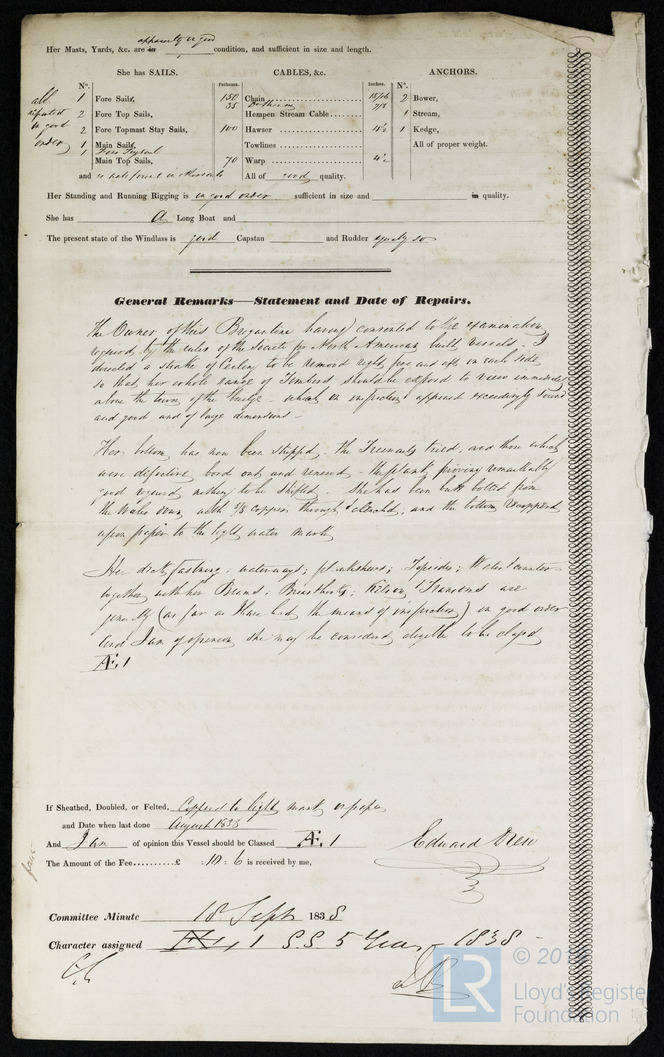 apparently in good
Her Masts, Yards, &c. are in condition, and sufficient in size and length.
She has SAILS.
CABLES, &c.
ANCHORS.
all reputed in good order
Nº.
1 Fore Sails,
2 Fore Top Sails,
2 Fore Topmast Stay Sails,
1 Main Sails,
1 Fore Trysail
Main Top Sails,
and is sufficient in
Fathoms.
Inches.
150 Chain 15/16
35 7/8
Hempen Stream Cable
100 Hawser
Towlines
70 Warp 4½
All of good quality.
Nº.
2 Bower,
1 Stream,
1 Kedge,
All of proper weight.
Her Standing and Running Rigging is in good order sufficient in size and in quality.
She has A Long Boat and
The present state of the Windlass is good Capstan and Rudder equally so
General Remarks—Statement and Date of Repairs.
The Owner of this Brigantine having consented to the examination
required by the rules of the Society for North American built vessels - I
directed a strake of Ceiling to be removed right fore and aft on each side
so that her whole range of Timbers should be exposed to view immediately
above the turn of the bilge - which on inspection appeared exceedingly sound
and good and of large dimensions -
Her bottom has now been stripped - the Treenails tried, and those which
were defective bored out and renewed - the plank proving remarkably
good required nothing to be shifted. She has been butt bolted from
the Wales down, with 5/8 copper through & clenched, and the bottom coppered
upon paper to the light water mark
Her deck fastning; waterways; plankshears; Topsides; Wales & counter
together with her Beams; Breasthooks; Kelson & Transoms are
generally (as far as I have had the means of inspection) in good order
And I am of opinion she may be considered eligible to be classed
Æ, 1
If Sheathed, Doubled, or Felted, Coppered to light mark on paper
and Date when last done August 1838
And I am of opinion this Vessel should be Classed Æ, 1
The Amount of the Fee..........£ : 10 : 6 is received by me,
Edward Drew
Committee Minute 18 Sept 1838
Character assigned Æ, 1 S.S. 5 Years - 1838 -
LR
Lloyd's Register
Foundation